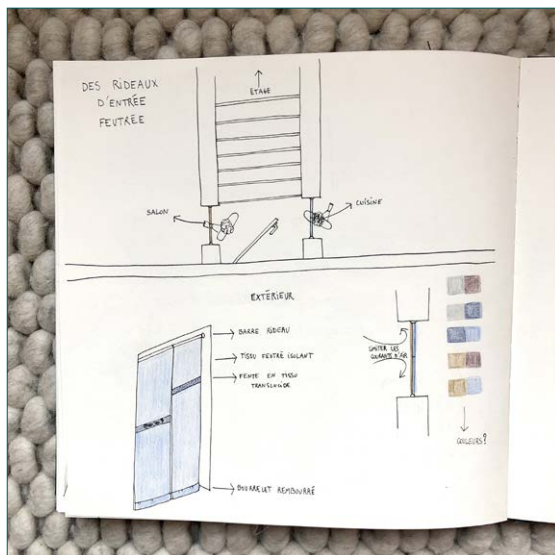 DES RIDEAUX
D'ENTRÉE
FEUTRÉE
ETAGE
SALON
CUISINE
EXTÉRIEUR
BARRE RIDEAU
TISSU FEUTRÉ ISOLANT
FENTE EN TISSU
TRANSLUCIDE
BOURRELET REMBOURRÉ
LIMITER LES
COURANTS D'AIR
COULEURS?